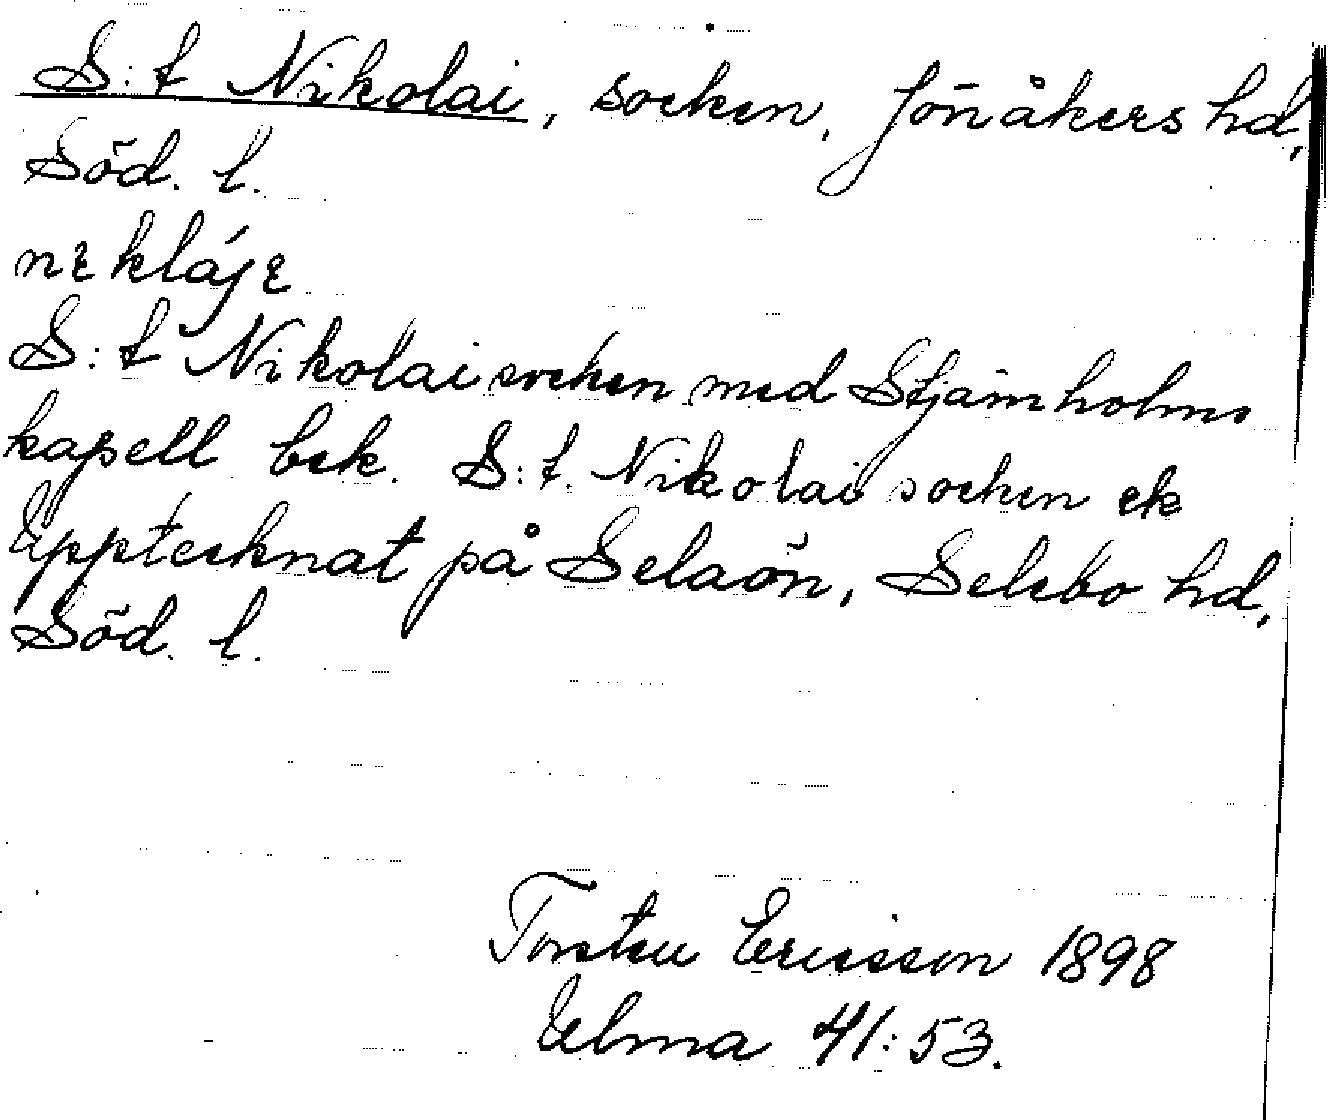 S:t Nikolai, socken, Jönåkers hd,
Söd. l.
nɛklájɛ
S:t Nikolai socken med Stjärnholms
kapell bek. S:t. Nikolai socken ek
Upptecknat på Selaön, Selebo hd,
Söd. l.
Torsten Ericsson 1898
Ulma 41:53.